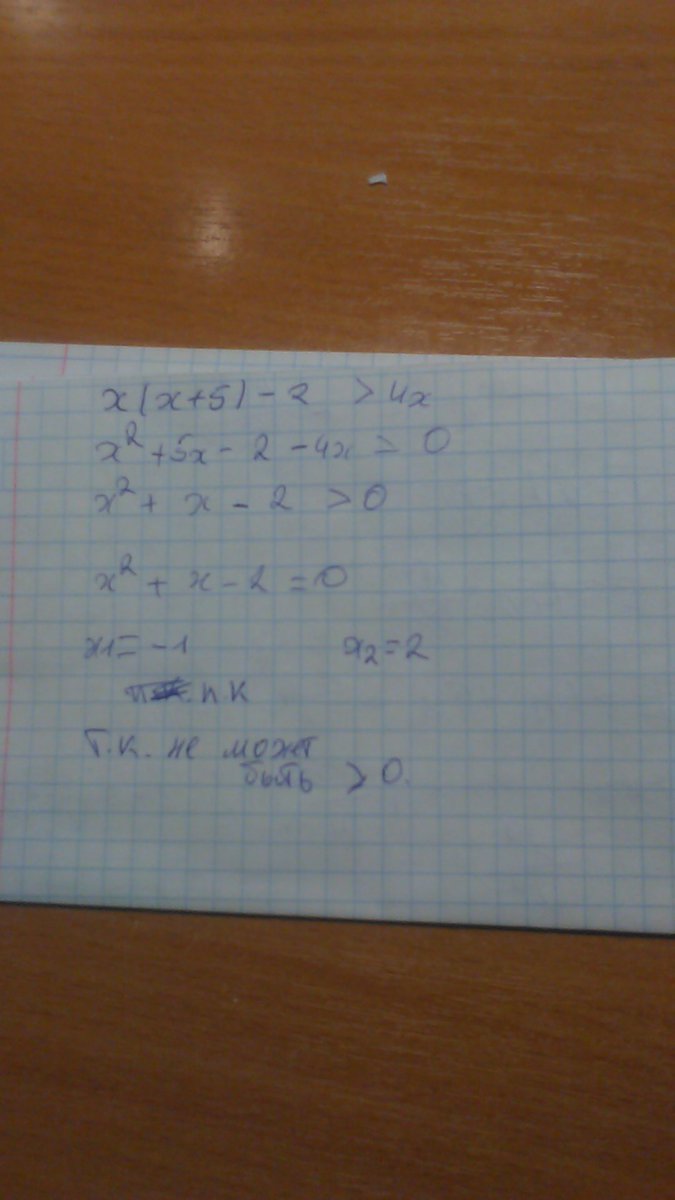 x(x+5)-2 > 4x
x²+5x-2-4x > 0
x²+x-2 > 0
x²+x-2=0
x1=-1 x₂=2
п.к
т.к. не может
быть > 0.